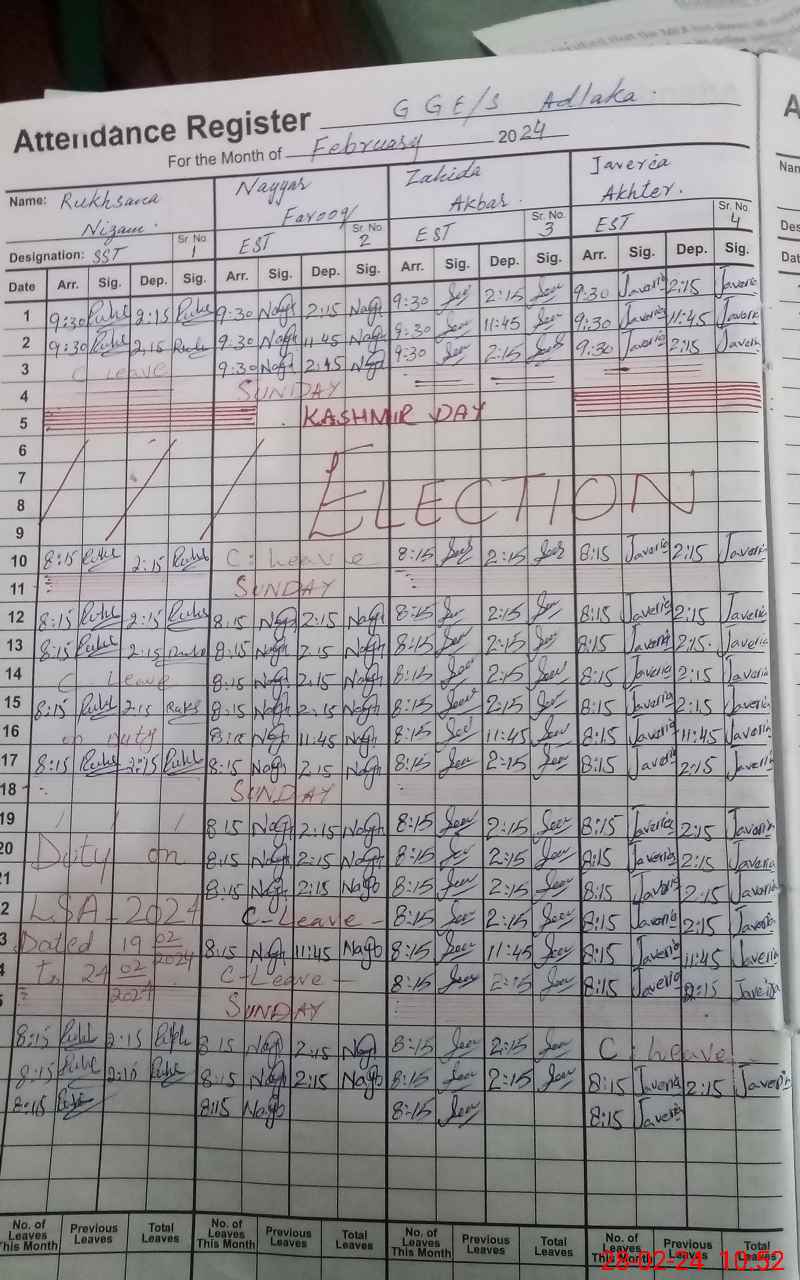 Attendance Register GGE/S Adlaka.
For the Month of February 2024
Name: Rukhsana Nizam. Nayyar Farooq Zahida Akbar. Javeria Akhter.
Designation: SST Sr. No. 1 EST Sr. No. 2 EST Sr. No. 3 EST Sr. No. 4
Date Arr. Sig. Dep. Sig. Arr. Sig. Dep. Sig. Arr. Sig. Dep. Sig. Arr. Sig. Dep. Sig.
1 9:30 Rukh 2:15 Rukh 9:30 Nagh 2:15 Nagh 9:30 2:15 9:30 Javeria 2:15 Javeria
2 9:30 Rukh 2:15 Rukh 9:30 Nagh 11:45 Nagh 9:30 11:45 9:30 Javeria 11:45 Javeria
3 C Leave 9:30 Nagh 2:45 Nagh 9:30 2:15 9:30 Javeria 2:15 Javeria
4 SUNDAY
5 KASHMIR DAY
6
7
8 ELECTION
9
10 8:15 Rukh 2:15 Rukh C: Leave 8:15 2:15 8:15 Javeria 2:15 Javeria
11 SUNDAY
12 8:15 Rukh 2:15 Rukh 8:15 Nagh 2:15 Nagh 8:15 2:15 8:15 Javeria 2:15 Javeria
13 8:15 Rukh 2:15 Rukh 8:15 Nagh 2:15 Nagh 8:15 2:15 8:15 Javeria 2:15. Javeria
14 C Leave 8:15 Nagh 2:15 Nagh 8:15 2:15 8:15 Javeria 2:15 Javeria
15 8:15 Rukh 2:15 Rukh 8:15 Nagh 2:15 Nagh 8:15 2:15 8:15 Javeria 2:15 Javeria
16 on duty 8:15 Nagh 11:45 Nagh 8:15 11:45 8:15 Javeria 11:45 Javeria
17 8:15 Rukh 2:15 Rukh 8:15 Nagh 2:15 Nagh 8:15 2:15 8:15 Javeria 2:15 Javeria
18 SUNDAY
19 8:15 Nagh 2:15 Nagh 8:15 2:15 8:15 Javeria 2:15 Javeria
20 Duty on 8:15 Nagh 2:15 Nagh 8:15 2:15 8:15 Javeria 2:15 Javeria
21 8:15 Nagh 2:15 Nagh 8:15 2:15 8:15 Javeria 2:15 Javeria
2 LSA-2024 C-Leave- 8:15 2:15 8:15 Javeria 2:15 Javeria
3 Dated 19 02 2024 8:15 Nagh 11:45 Nagh 8:15 11:45 8:15 Javeria 11:45 Javeria
4 to 24 02 2024 C-Leave- 8:15 2:15 8:15 Javeria 2:15 Javeria
5 SUNDAY
8:15 Rukh 2:15 Rukh 8:15 Nagh 2:15 Nagh 8:15 2:15 C: Leave
8:15 Rukh 2:15 Rukh 8:15 Nagh 2:15 Nagh 8:15 2:15 8:15 Javeria 2:15 Javeria
8:15 Rukh 8:15 Nagh 8:15 8:15 Javeria
No. of Leaves This Month Previous Leaves Total Leaves No. of Leaves This Month Previous Leaves Total Leaves No. of Leaves This Month Previous Leaves Total Leaves No. of Leaves This Month Previous Leaves Total Leaves
28-02-24 10:52